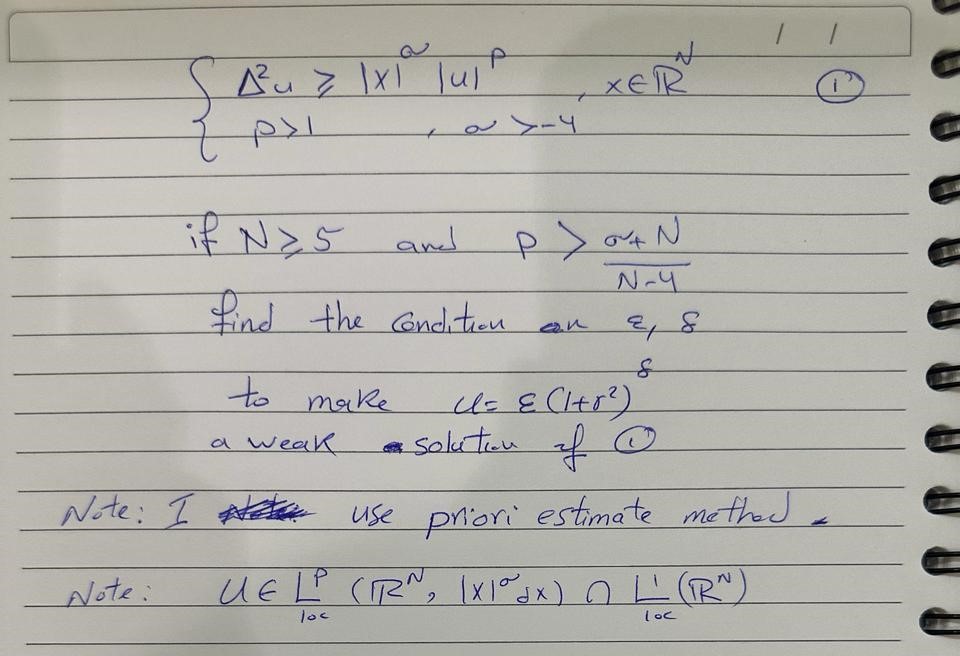 / /
{ Δ²u ≥ |x|^σ |u|^p , x∈ℝ^N ①
p>1 , σ>-4
if N≥5 and p > (σ+N)/(N-4)
find the Condition on ε, δ
to make u= ε(1+r²)^δ
a weak solution of ①
Note: I use priori estimate method.
Note: U∈ L^p_loc (ℝ^N, |x|^σ dx) ∩ L^1_loc (ℝ^N)